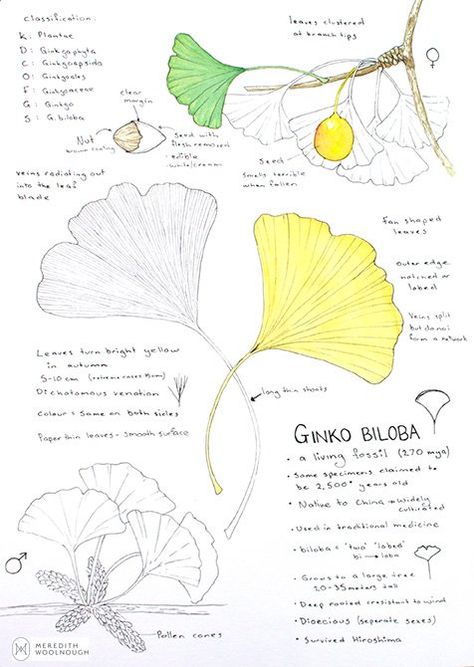 classification:
K: Plantae
D: Ginkgophyta
C: Ginkgoopsida
O: Ginkgoales
F: Ginkgoaceae
G: Ginkgo
S: G. biloba
leaves clustered
at branch tips
♀
clear
margin
Nut
brown coating
Seed with
flesh removed
· edible
· white/cream
Seed -
smells terrible
when fallen
veins radiating out
into the leaf
blade
Fan shaped
leaves
outer edge
notched or
lobed
Veins split
but do not
form a network
Leaves turn bright yellow
in autumn
5-10 cm (extreme cases 15cm)
Dichotomous venation
Colour = Same on both sides
Paper thin leaves - smooth surface
long thin shoots
GINKO BILOBA
· a living fossil (270 mya)
· Some specimens claimed to
be 2,500 years old
· Native to China → widely
cultivated
· Used in traditional medicine
· biloba = "two" "lobed"
bi loba
· Grows to a large tree
20-35 meters tall
· Deep rooted & resistant to wind
· Dioecious (seperate sexes)
· Survived Hiroshima
♂
Pollen cones
MEREDITH
WOOLNOUGH